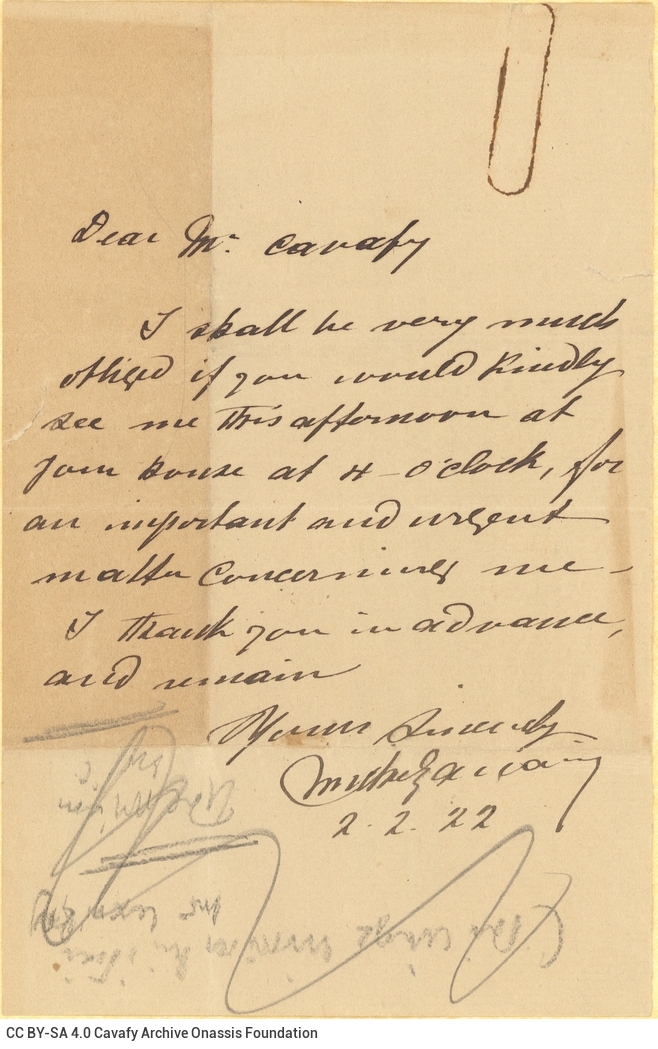 Dear Mr. Cavafy
I shall be very much
obliged if you would kindly
see me this afternoon at
your house at 4 - o'clock, for
an important and urgent
matter concerning me -
I thank you in advance,
and remain
Yours Sincerely
2. 2. 22
CC BY-SA 4.0 Cavafy Archive Onassis Foundation